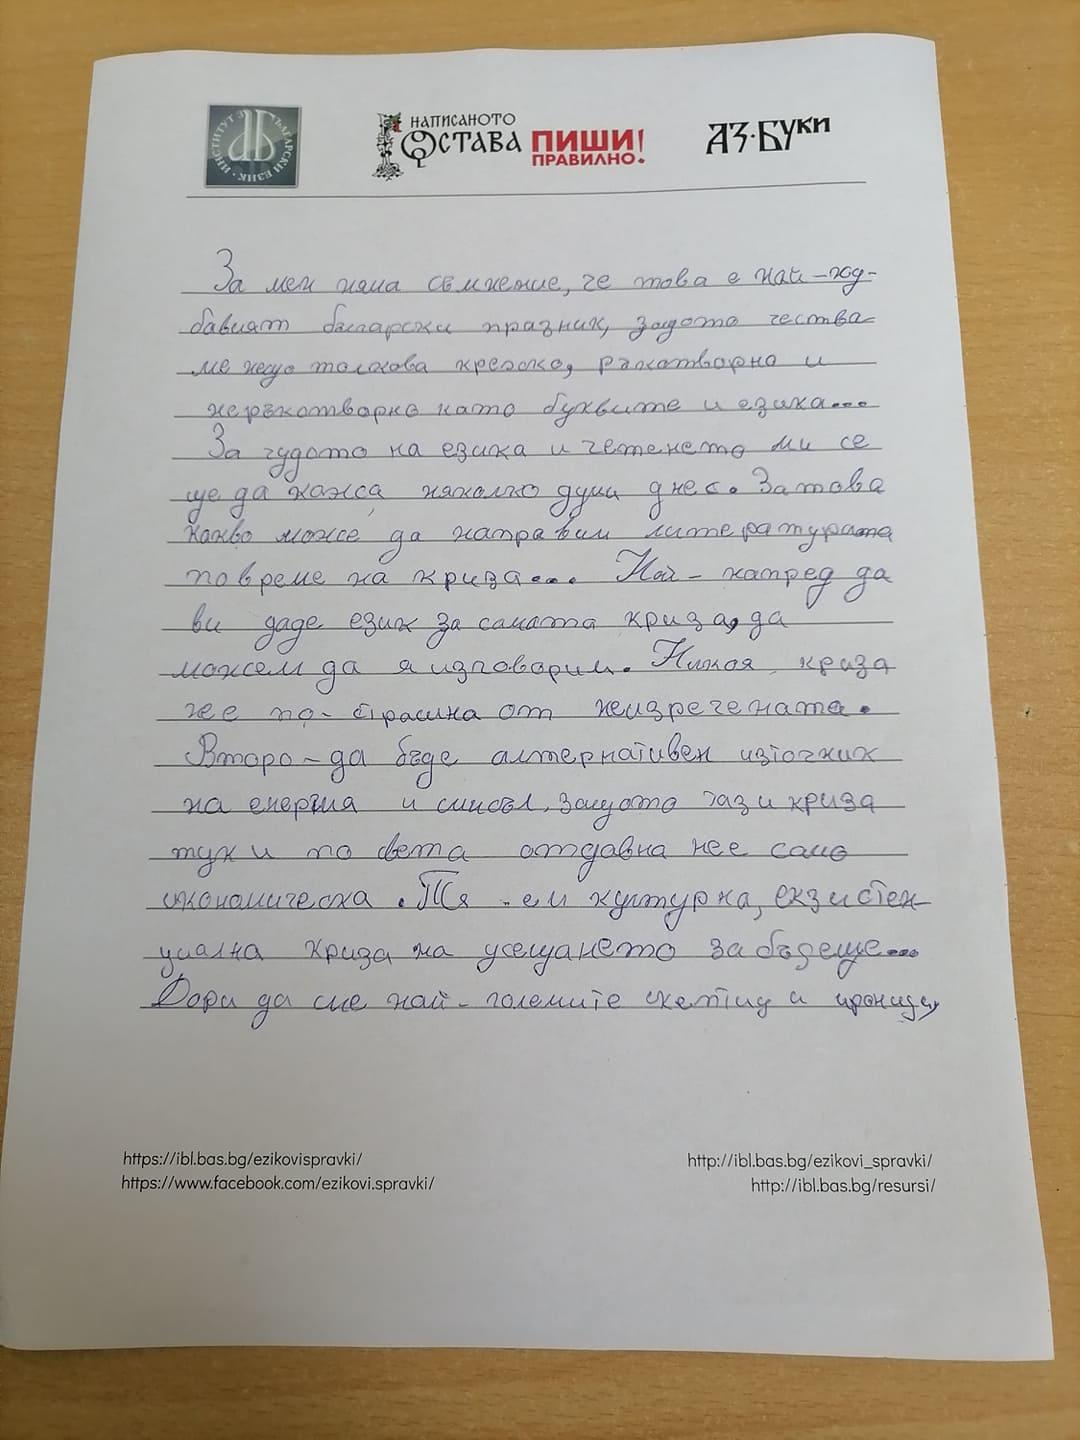 ИНСТИТУТ ЗА БЪЛГАРСКИ ЕЗИК
НАПИСАНОТО
ОСТАВА
ПИШИ!
ПРАВИЛНО!
АЗ·БУКИ
За мен няма съмнение, че това е най-ху-
бавият български празник, защото чества-
ме нещо толкова крехко, ръкотворно и
неръкотворно като буквите и езика...
За чудото на езика и четенето ми се
ще да кажа няколко думи днес. За това
какво може да направи литературата
по време на криза... Най-напред да
ви даде език за самата криза, да
можем да я изговорим. Никоя криза
не е по-страшна от неизречената.
Второ - да бъде алтернативен източник
на енергия и смисъл, защото тази криза
тук и по света отдавна не е само
икономическа. Тя е и културна, екзистен-
циална криза на усещането за бъдеще...
Дори да сме най-големите скептици и ироници,
https://ibl.bas.bg/ezikovispravki/
https://www.facebook.com/ezikovi.spravki/
http://ibl.bas.bg/ezikovi_spravki/
http://ibl.bas.bg/resursi/